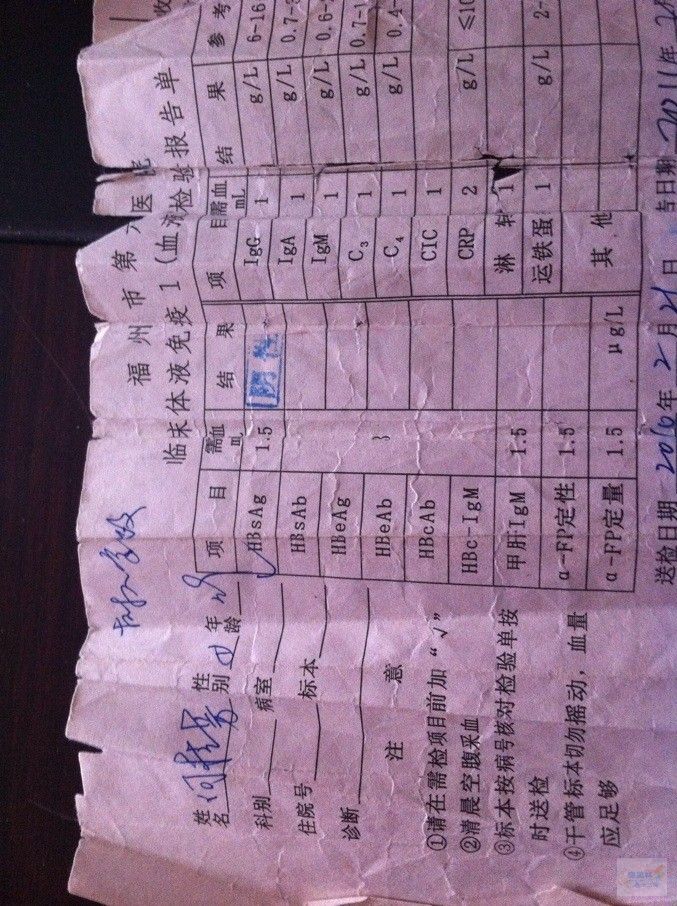 福州市第六医院
临床体液免疫1（血清检验报告单
姓名 性别 年龄
科别 病室
住院号 标本
诊断
注意
①请在需检项目前加“√”
②清晨空腹采血
③标本按病号核对检验单按
时送检
④干管标本切勿摇动，血量
应足够
项目 需血mL 结果 项目 需血mL 结果 参考
√HBsAg 1.5 阴性 IgG 1 g/L 6-16
HBsAb IgA 1 g/L 0.7-
HBeAg IgM 1 g/L 0.6-
HBeAb C3 1 g/L 0.7-1
HBcAb C4 1 g/L 0.4-
HBc-IgM CIC 1
甲肝IgM 1.5 CRP 2 g/L ≤10
α-FP定性 1.5 淋 1
α-FP定量 1.5 μg/L 运铁蛋 1 g/L 2-
其他
送检日期 2010年2月21日 告日期 2011年